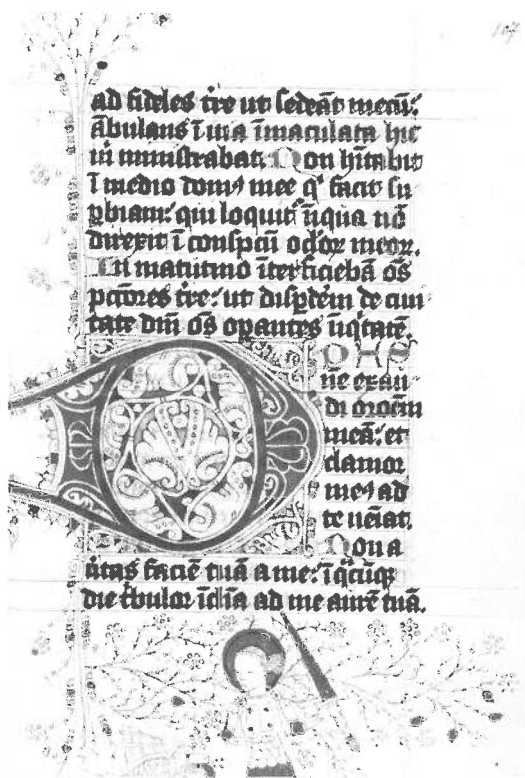 107
ad fideles t̄re ut sedeāt mecū:
ābulans ī uia īmaculata hic
m ministrabat. Non hītabit
ī medio dom9 mee q̄ facit su
ꝑbiam: qui loquit᷑ īiqua nō
direxit ī conspcū oclōꝝ meoꝝ.
In matutino īterficiebā oēs
pctōres t̄re: ut disꝑdēm de ciui
tate dm̄ oēs opantes īiqtatē.
DHS
ne exau
di orōem
meā: et
clamor
me9 ad
te ueīat.
Non a
ūtas faciē tuā a me: ī qcūqꝫ
die tbulor īclīa ad me aurē tuā.